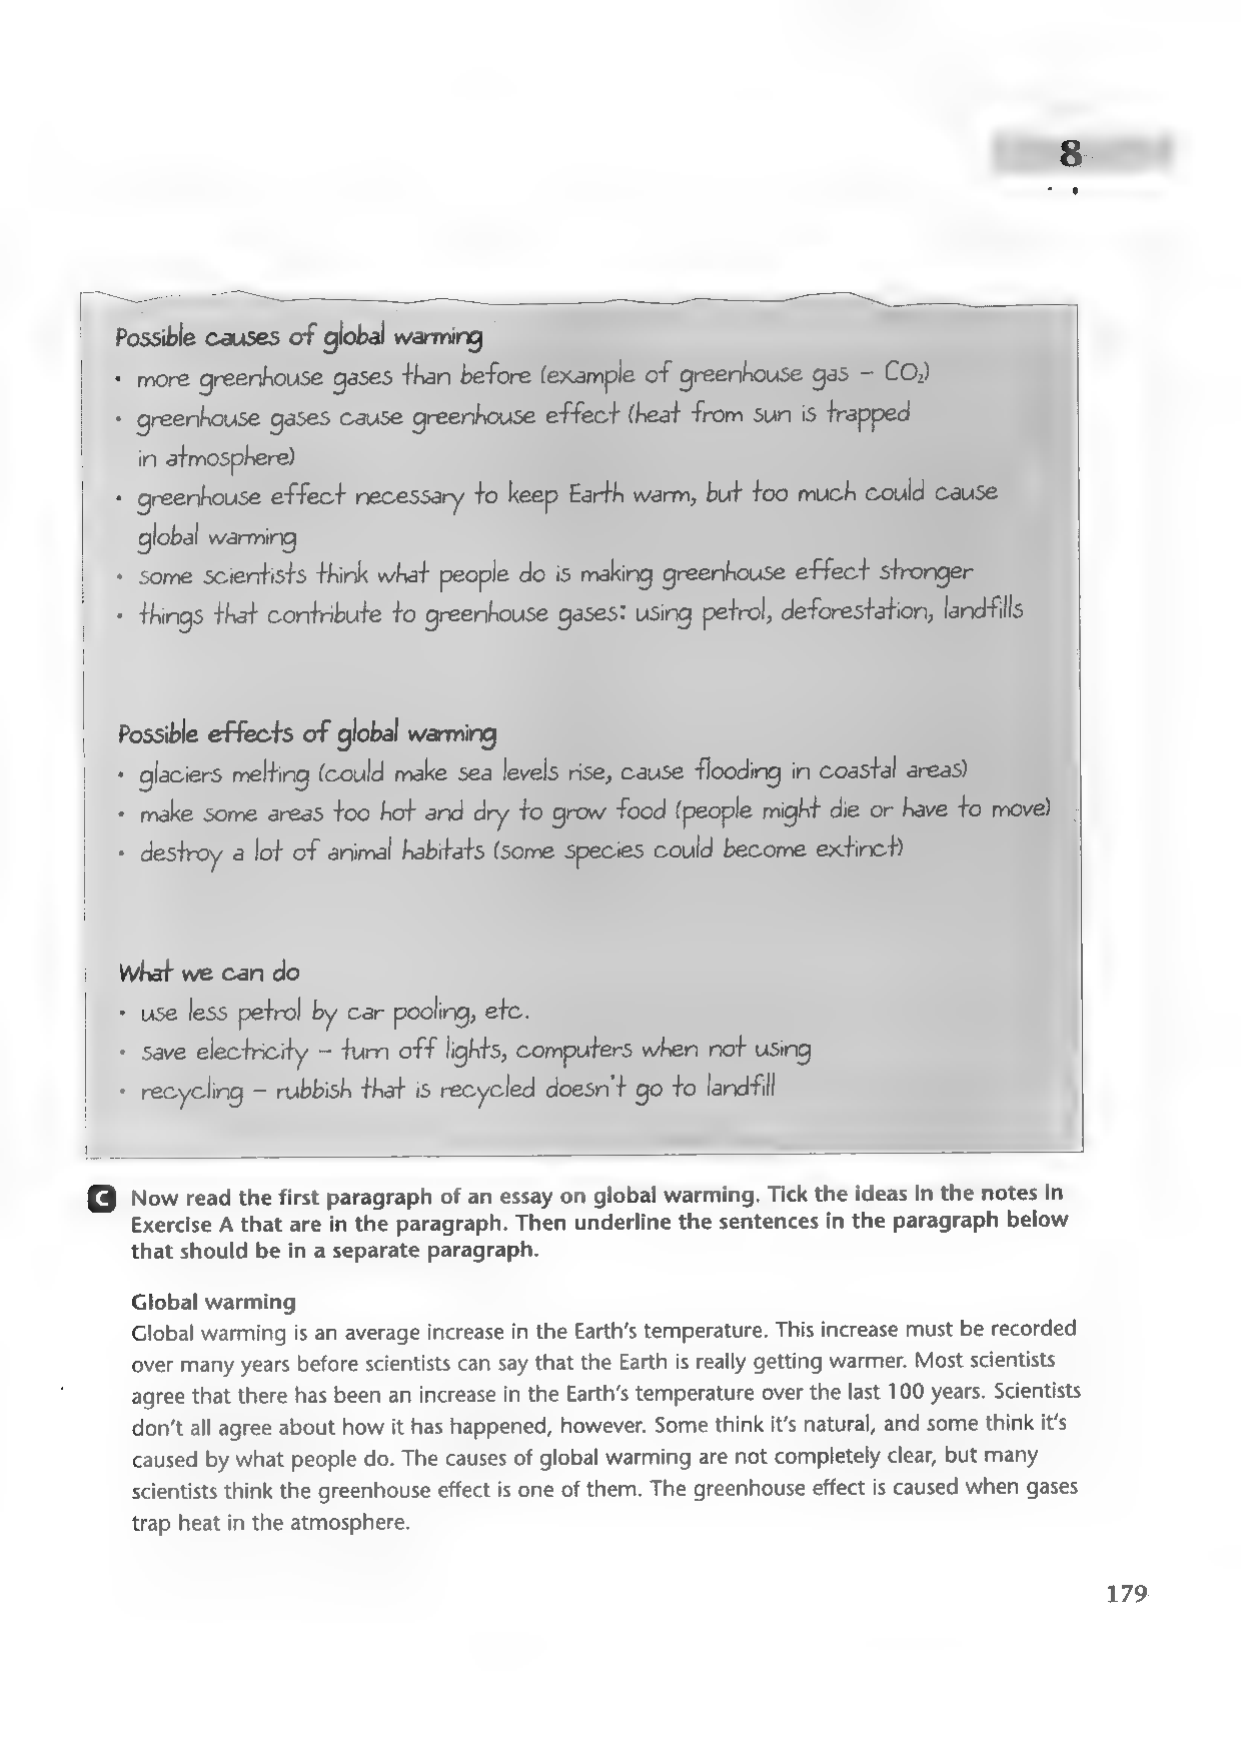 8
Possible causes of global warming
• more greenhouse gases than before (example of greenhouse gas – CO₂)
• greenhouse gases cause greenhouse effect (heat from sun is trapped
in atmosphere)
• greenhouse effect necessary to keep Earth warm, but too much could cause
global warming
• some scientists think what people do is making greenhouse effect stronger
• things that contribute to greenhouse gases: using petrol, deforestation, landfills
Possible effects of global warming
• glaciers melting (could make sea levels rise, cause flooding in coastal areas)
• make some areas too hot and dry to grow food (people might die or have to move)
• destroy a lot of animal habitats (some species could become extinct)
What we can do
• use less petrol by car pooling, etc.
• save electricity – turn off lights, computers when not using
• recycling – rubbish that is recycled doesn't go to landfill
C Now read the first paragraph of an essay on global warming. Tick the ideas in the notes in
Exercise A that are in the paragraph. Then underline the sentences in the paragraph below
that should be in a separate paragraph.
Global warming
Global warming is an average increase in the Earth's temperature. This increase must be recorded
over many years before scientists can say that the Earth is really getting warmer. Most scientists
agree that there has been an increase in the Earth's temperature over the last 100 years. Scientists
don't all agree about how it has happened, however. Some think it's natural, and some think it's
caused by what people do. The causes of global warming are not completely clear, but many
scientists think the greenhouse effect is one of them. The greenhouse effect is caused when gases
trap heat in the atmosphere.
179